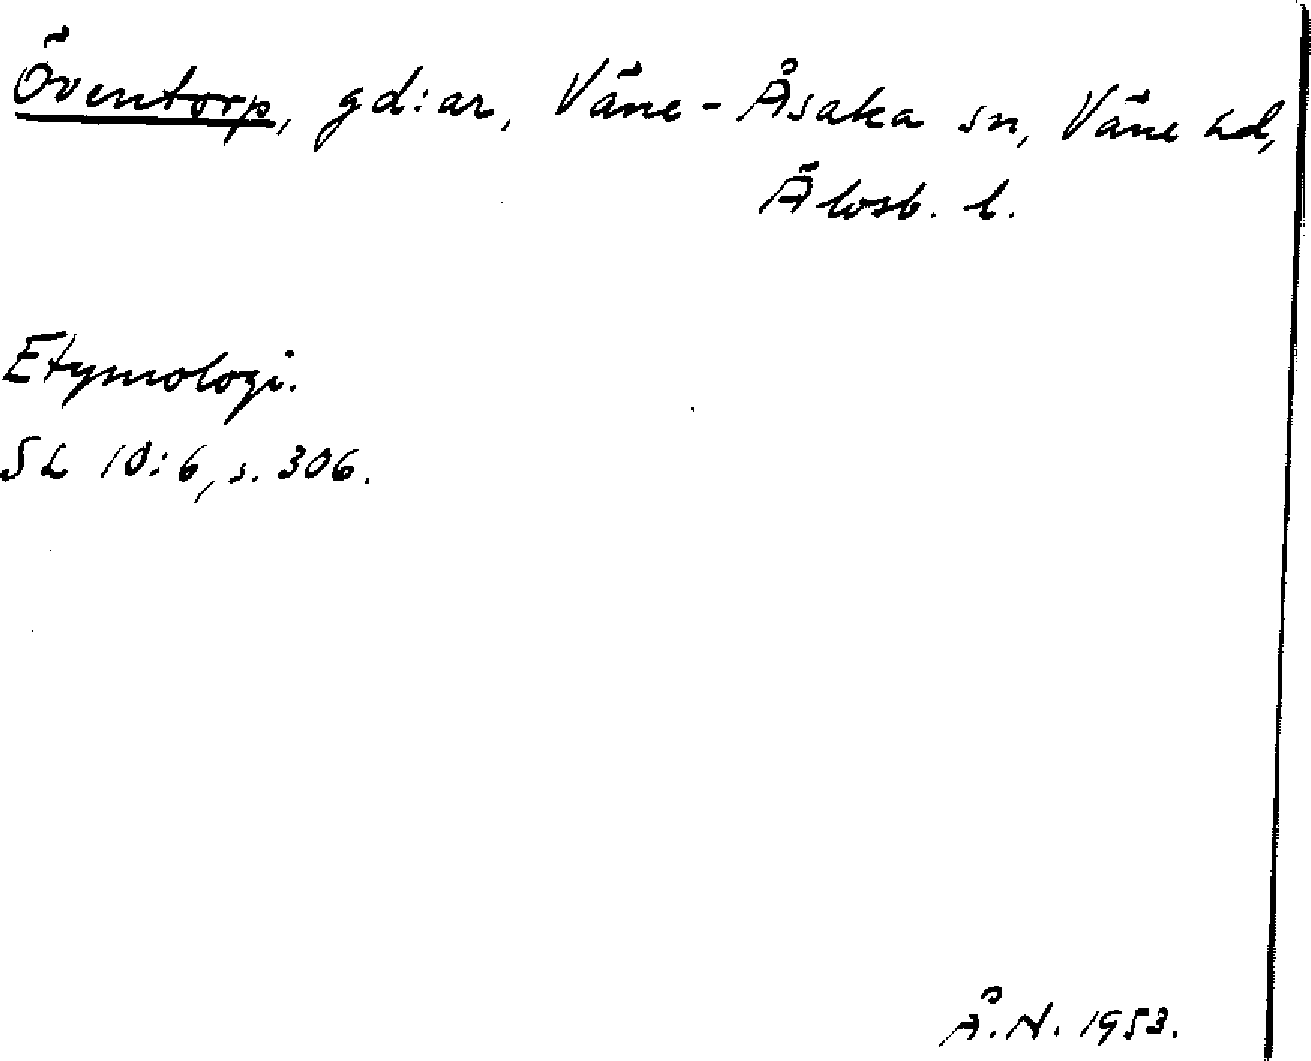 Öventorp, gd:ar, Väne-Åsaka sn, Väne hd,
Älvsb. l.
Etymologi.
SL 10:6, s. 306.
Å.N. 1953.